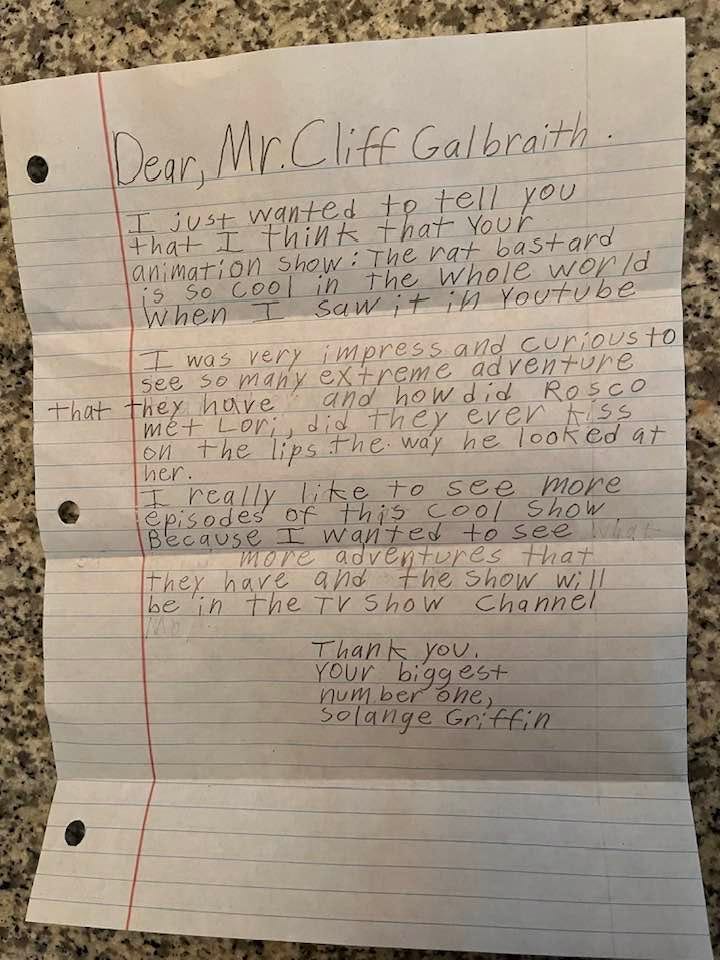 Dear, Mr. Cliff Galbraith.
I just wanted to tell you
that I think that Your
animation show: The rat bastard
is so cool in the whole world
When I saw it in Youtube
I was very impress and curious to
see so many extreme adventure
that they have and how did Rosco
met Lori, did they ever kiss
on the lips the way he looked at
her.
I really like to see more
episodes of this cool show
Because I wanted to see what
more adventures that
they have and the show will
be in the TV Show Channel
Thank you.
Your biggest
number one,
Solange Griffin